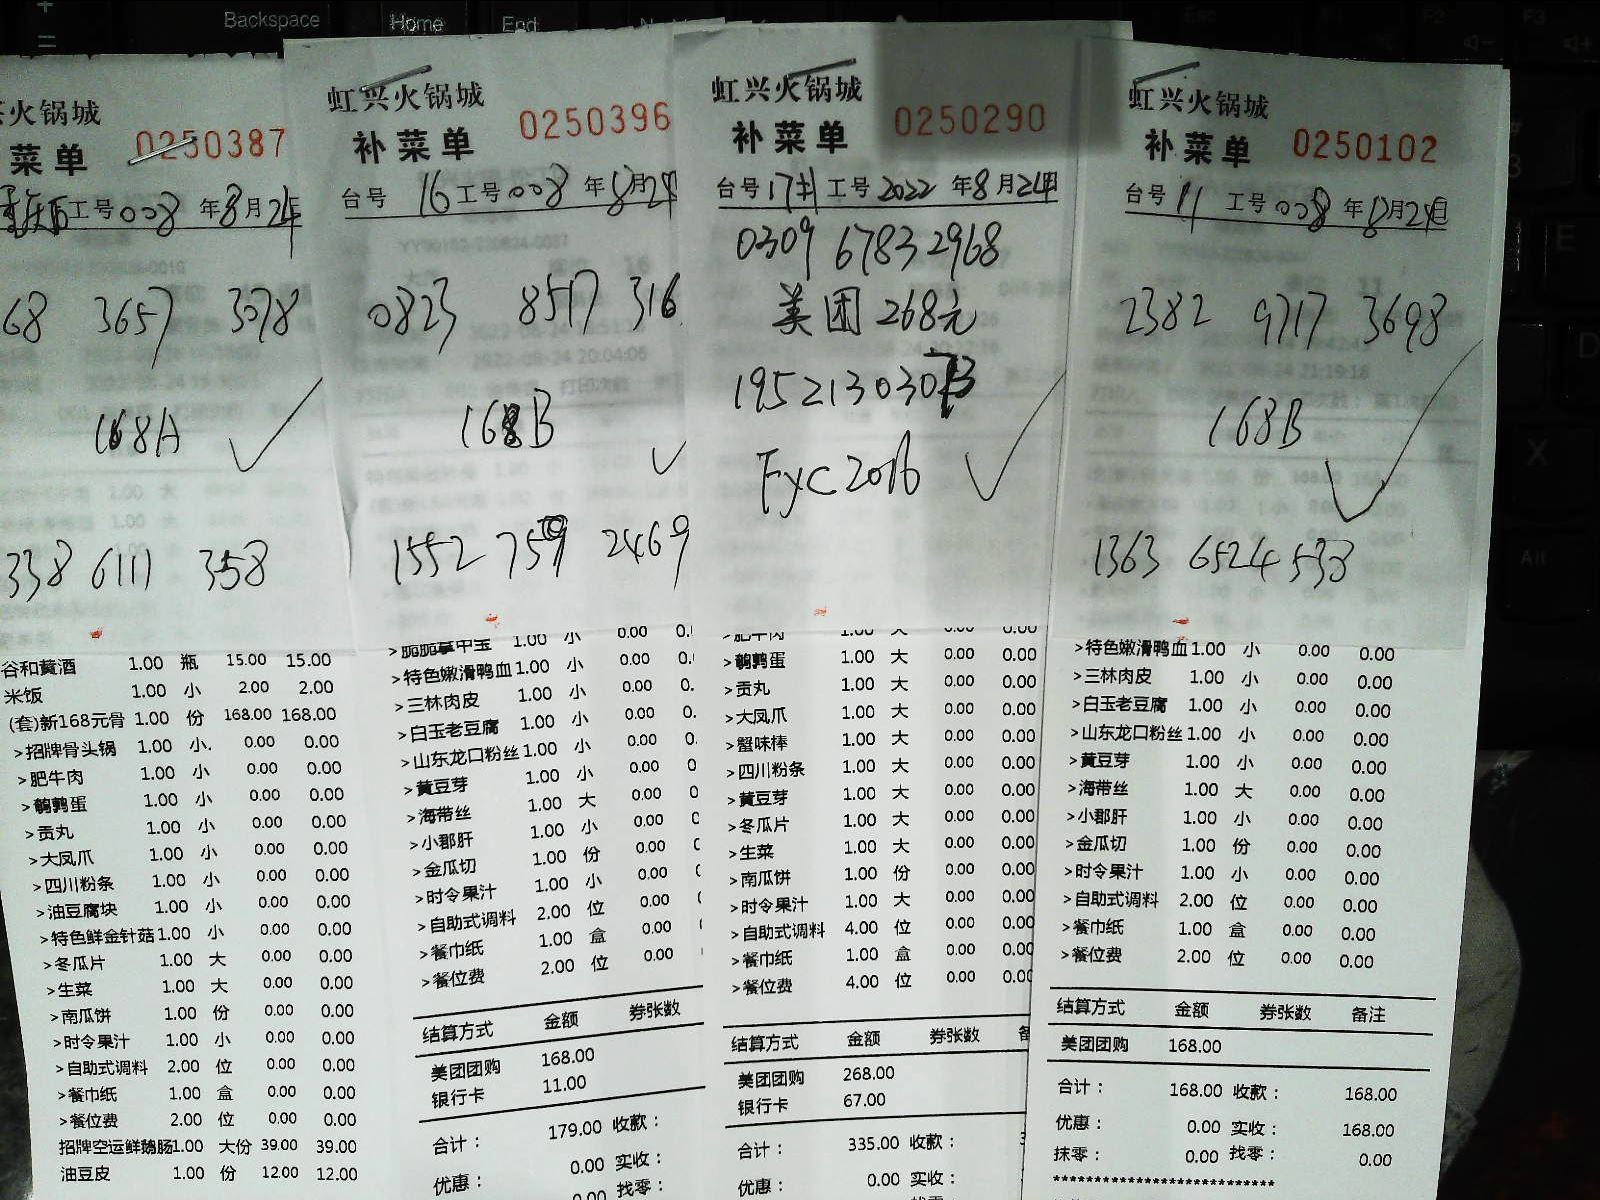 Backspace
Home
End
火锅城
菜单
0250387
工号008 年8月24
68 3657 3078
168A
338 6111 358
谷和黄酒 1.00 瓶 15.00 15.00
米饭 1.00 小 2.00 2.00
(套)新168元骨 1.00 份 168.00 168.00
>招牌骨头锅 1.00 小. 0.00 0.00
>肥牛肉 1.00 小 0.00 0.00
>鹌鹑蛋 1.00 小 0.00 0.00
>贡丸 1.00 小 0.00 0.00
>大凤爪 1.00 小 0.00 0.00
>四川粉条 1.00 小 0.00 0.00
>油豆腐块 1.00 小 0.00 0.00
>特色鲜金针菇 1.00 小 0.00 0.00
>冬瓜片 1.00 大 0.00 0.00
>生菜 1.00 大 0.00 0.00
>南瓜饼 1.00 份 0.00 0.00
>时令果汁 1.00 小 0.00 0.00
>自助式调料 2.00 位 0.00 0.00
>餐巾纸 1.00 盒 0.00 0.00
>餐位费 2.00 位 0.00 0.00
招牌空运鲜鹅肠 1.00 大份 39.00 39.00
油豆皮 1.00 份 12.00 12.00
虹兴火锅城
补菜单
0250396
台号 16 工号008 年8月24
0823 8517 316
168B
1552 759 2469
>脆脆掌中宝 1.00 小 0.00 0.
>特色嫩滑鸭血 1.00 小 0.00 0.
>三林肉皮 1.00 小 0.00 0.
>白玉老豆腐 1.00 小 0.00 0.
>山东龙口粉丝 1.00 小 0.00 0.
>黄豆芽 1.00 小 0.00 0
>海带丝 1.00 大 0.00 0
>小郡肝 1.00 小 0.00 0
>金瓜切 1.00 份 0.00
>时令果汁 1.00 小 0.00
>自助式调料 2.00 位 0.00
>餐巾纸 1.00 盒 0.00
>餐位费 2.00 位 0.00
结算方式 金额 券张数
美团团购 168.00
银行卡 11.00
合计: 179.00 收款:
优惠: 0.00 实收:
0.00 找零:
虹兴火锅城
补菜单
0250290
台号 17 工号2022 年8月24
0309 6783 2968
美团 268元
Fyc2016
>肥牛肉 1.00 大 0.00 0.00
>鹌鹑蛋 1.00 大 0.00 0.00
>贡丸 1.00 大 0.00 0.00
>大凤爪 1.00 大 0.00 0.00
>蟹味棒 1.00 大 0.00 0.00
>四川粉条 1.00 大 0.00 0.00
>黄豆芽 1.00 大 0.00 0.00
>冬瓜片 1.00 大 0.00 0.00
>生菜 1.00 大 0.00 0.00
>南瓜饼 1.00 份 0.00 0.00
>时令果汁 1.00 大 0.00 0.00
>自助式调料 4.00 位 0.00 0.00
>餐巾纸 1.00 盒 0.00 0.00
>餐位费 4.00 位 0.00 0.00
结算方式 金额 券张数
美团团购 268.00
银行卡 67.00
合计: 335.00 收款:
优惠: 0.00 实收:
虹兴火锅城
补菜单
0250102
台号 11 工号008 年8月24日
2382 9717 3698
168B
1363 6524 538
>特色嫩滑鸭血 1.00 小 0.00 0.00
>三林肉皮 1.00 小 0.00 0.00
>白玉老豆腐 1.00 小 0.00 0.00
>山东龙口粉丝 1.00 小 0.00 0.00
>黄豆芽 1.00 小 0.00 0.00
>海带丝 1.00 大 0.00 0.00
>小郡肝 1.00 小 0.00 0.00
>金瓜切 1.00 份 0.00 0.00
>时令果汁 1.00 小 0.00 0.00
>自助式调料 2.00 位 0.00 0.00
>餐巾纸 1.00 盒 0.00 0.00
>餐位费 2.00 位 0.00 0.00
结算方式 金额 券张数 备注
美团团购 168.00
合计: 168.00 收款: 168.00
优惠: 0.00 实收: 168.00
抹零: 0.00 找零: 0.00